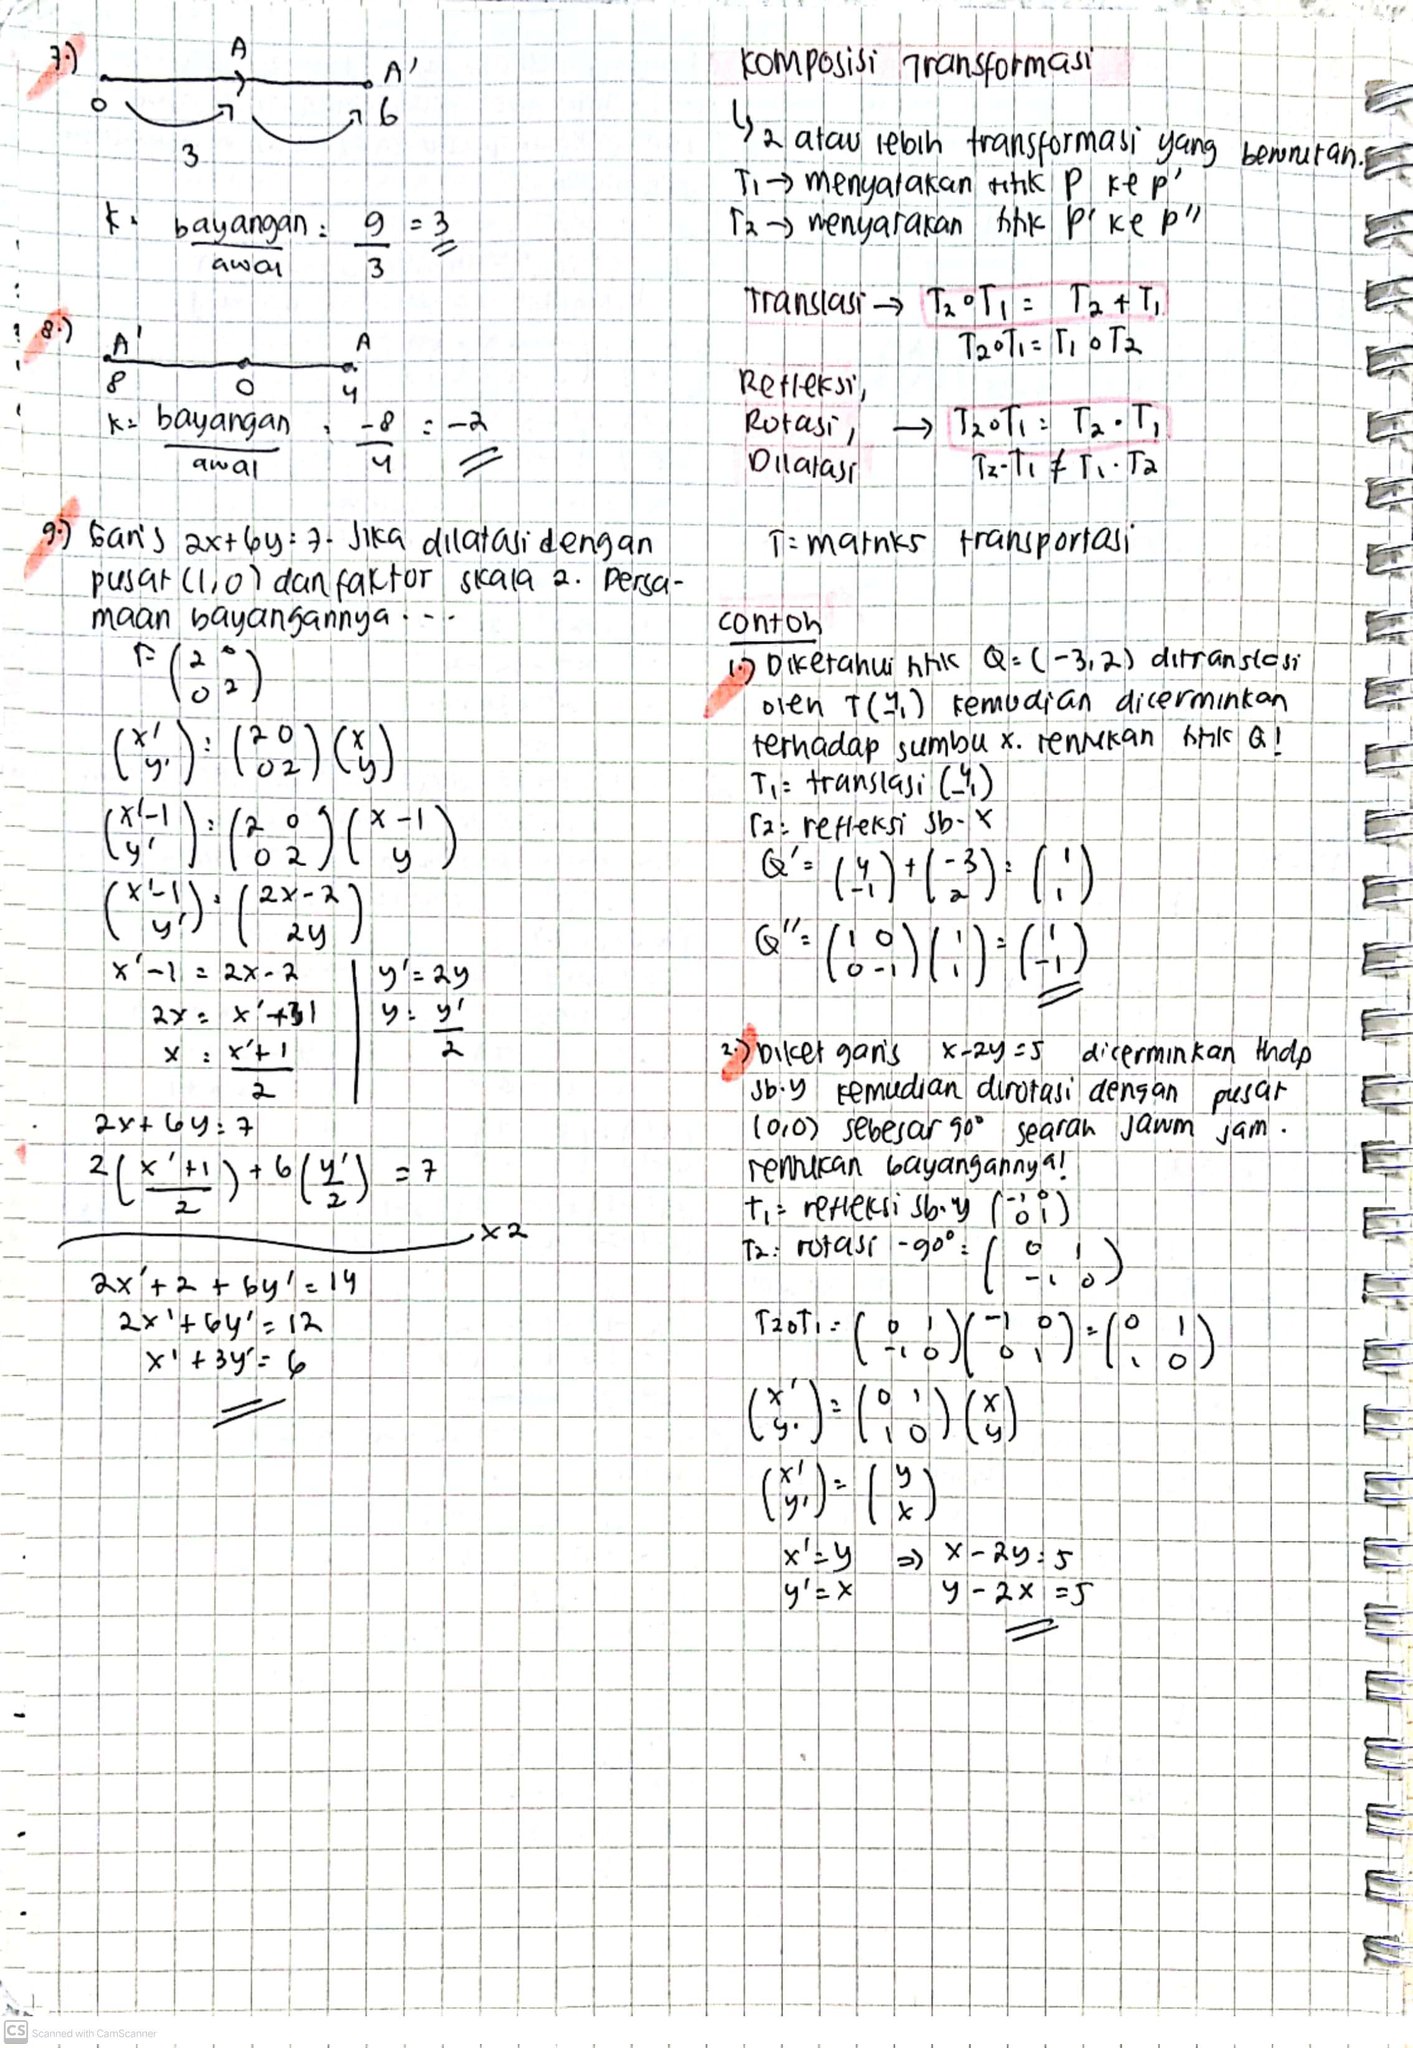 7.)
A
A'
0
6
3
k = bayangan = 9 = 3
awal 3
8.)
A' A
8 0 4
k = bayangan = -8 = -2
awal 4
9.) Garis 2x+6y=7. Jika dilatasi dengan
pusat (1,0) dan faktor skala 2. Persa-
maan bayangannya ...
T= (2 0
0 2)
(x' = (2 0 (x
y') 0 2) y)
(x'-1 = (2 0 (x-1
y') 0 2) y)
(x'-1 = (2x-2
y') 2y)
x'-1 = 2x-2 | y'=2y
2x = x'+1 | y = y'
x = x'+1 2
2
2x+6y=7
2(x'+1) + 6(y') = 7
2 2
x2
2x'+2 + 6y' = 14
2x'+6y' = 12
x'+3y' = 6
Komposisi Transformasi
↳ 2 atau lebih transformasi yang berurutan.
T1 → menyatakan titik P ke P'
T2 → menyatakan titik P' ke P"
Translasi → T2∘T1 = T2 + T1
T2∘T1 = T1∘T2
Refleksi,
Rotasi, → T2∘T1 = T2 · T1
Dilatasi T2·T1 ≠ T1·T2
T= matriks transportasi
Contoh
1.) Diketahui titik Q=(-3,2) ditranslasi
oleh T(4,1) kemudian dicerminkan
terhadap sumbu x. Tentukan titik Q!
T1= translasi (4
-1)
T2= refleksi sb-x
Q' = (4 + (-3 = (1
-1) 2) 1)
Q" = (1 0 (1 = (1
0 -1) 1) -1)
2.) Diket garis x-2y=5 dicerminkan thdp
sb.y kemudian dirotasi dengan pusat
(0,0) sebesar 90° searah jarum jam.
Tentukan bayangannya!
T1= refleksi sb.y (-1 0
0 1)
T2= rotasi -90° = (0 1
-1 0)
T2∘T1= (0 1 (-1 0 = (0 1
-1 0) 0 1) 1 0)
(x' = (0 1 (x
y') 1 0) y)
(x' = (y
y') x)
x'=y ⇒ x-2y=5
y'=x y-2x=5
CS Scanned with CamScanner